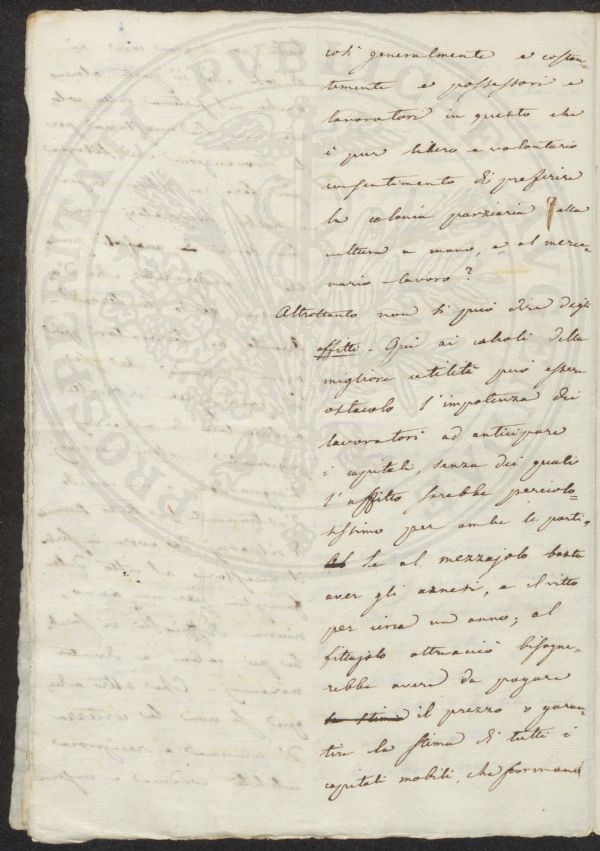 così generalmente e costan-
temente e possessori e
lavoratori in questo che
è pur libero e volontario
consentimento di preferire
la colonia parziaria alla
coltura a mano, e al merce-
nario lavoro?
Altrettanto non si può dire degli
affitti. Qui ai calcoli della
migliore utilità può esser
ostacolo l'impotenza dei
lavoratori ad anticipare
i capitali, senza dei quali
l'affitto sarebbe pericolo-
sissimo per ambe le parti.
Se al mezzajolo basta
aver gli arnesi, e il vitto
per circa un anno; al
fittajolo altresì bisogne-
rebbe avere da pagare
la stima il prezzo o garan-
tire la stima di tutti i
capitali mobili, che formano